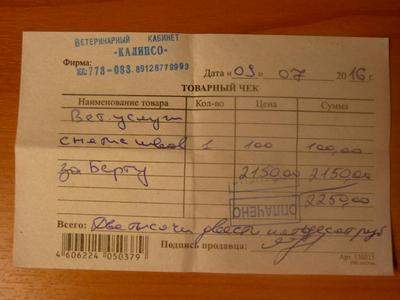 ВЕТЕРИНАРНЫЙ КАБИНЕТ
«КАЛИПСО»
Фирма: 778-083. 89128779993
Дата «09» 07 2016 г.
ТОВАРНЫЙ ЧЕК
Наименование товара Кол-во Цена Сумма
Вет. услуги
снятие швов 1 100 100,00
за Берту 2150,00 2150,00
2250,00
ОПЛАЧЕНО
Всего: Две тысячи двести пятьдесят руб
Подпись продавца:
4 606224 050379